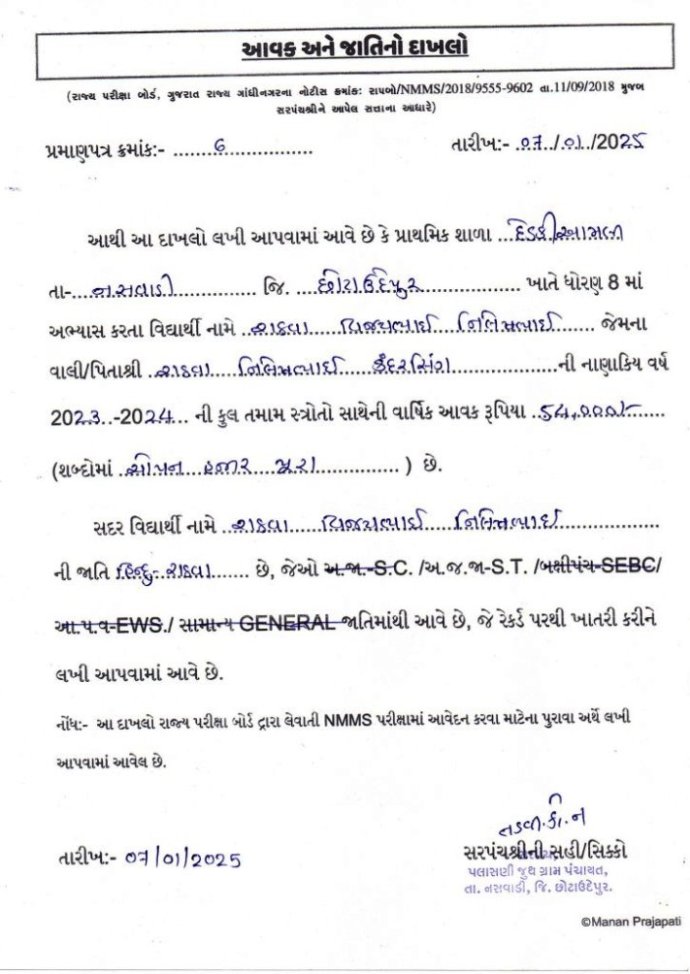 આવક અને જાતિનો દાખલો
(રાજ્ય પરીક્ષા બોર્ડ, ગુજરાત રાજ્ય ગાંધીનગરના નોટીસ ક્રમાંકઃ રાપબો/NMMS/2018/9555-9602 તા.11/09/2018 મુજબ
સરપંચશ્રીને આપેલ સત્તાના આધારે)
પ્રમાણપત્ર ક્રમાંક:- ......6.................. તારીખ:- .07../.01../2025
આથી આ દાખલો લખી આપવામાં આવે છે કે પ્રાથમિક શાળા ...
તા-....નસવાડી............... જિ. ....છોટાઉદેપુર................... ખાતે ધોરણ 8 માં
અભ્યાસ કરતા વિદ્યાર્થી નામે ..રાઠવા......વિજયભાઈ....નિલેિમભાઈ....... જેમના
વાલી/પિતાશ્રી ..રાઠવા.... ....................ની નાણાકિય વર્ષ
2023..-2024... ની કુલ તમામ સ્ત્રોતો સાથેની વાર્ષિક આવક રૂપિયા ..54,000/-.......
(શબ્દોમાં ..ચોપન...હજાર....પુરા............... ) છે.
સદર વિદ્યાર્થી નામે ..રાઠવા......વિજયભાઈ..... ...................
ની જાતિ .હિન્દુ-.રાઠવા....... છે, જેઓ અ.જા.-S.C. /અ.જ.જા-S.T. /બક્ષીપંચ-SEBC/
આ.પ.વ-EWS./ સામાન્ય GENERAL જાતિમાંથી આવે છે, જે રેકર્ડ પરથી ખાતરી કરીને
લખી આપવામાં આવે છે.
નોંધ:- આ દાખલો રાજ્ય પરીક્ષા બોર્ડ દ્વારા લેવાતી NMMS પરીક્ષામાં આવેદન કરવા માટેના પુરાવા અર્થે લખી
આપવામાં આવેલ છે.
તારીખ:- 07/01/2025
સરપંચશ્રીની સહી/સિક્કો
પલાસણી જુથ ગ્રામ પંચાયત,
તા. નસવાડી, જિ. છોટાઉદેપુર.
©Manan Prajapati